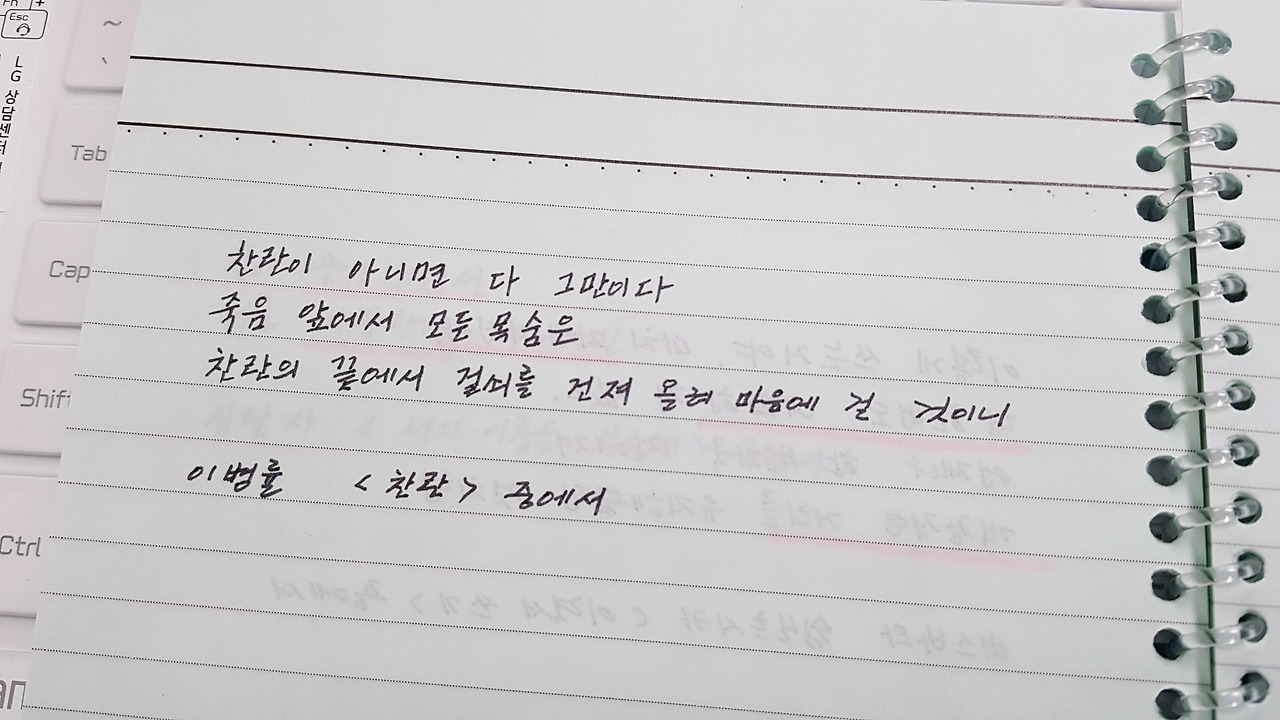 Fn
Esc
LG 상담센터
~
Tab
Cap
Shift
Ctrl
찬란이 아니면 다 그만이다
죽음 앞에서 모든 목숨은
찬란의 끝에서 걸쇠를 건져 올려 마음에 걸 것이니
이병률 <찬란> 중에서